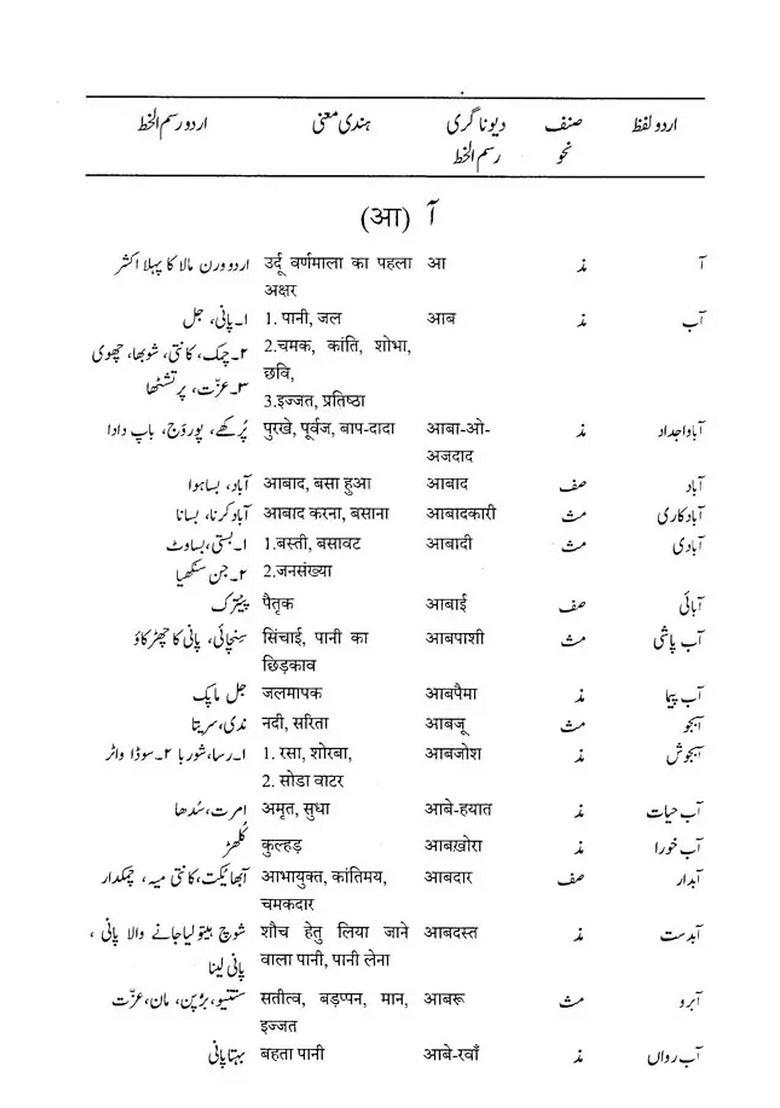 اردو لفظ	صنف	دیوناگری	ہندی معنی	اردو رسم الخط
نحو	رسم الخط
آ (आ)
آ	مذ	आ	उर्दू वर्णमाला का पहला	اردو ورن مالا کا پہلا اکشر
अक्षर
آب	مذ	आब	1. पानी, जल	۱۔پانی، جل
2.चमक, कांति, शोभा,	۲۔چمک، کانتی، شوبھا، چھوی
छवि,	۳۔عزّت، پرتشٹھا
3.इज्जत, प्रतिष्ठा
آباواجداد	مذ	आबा-ओ-	पुरखे, पूर्वज, बाप-दादा	پُرکھے، پوروَج، باپ دادا
अजदाद
آباد	صف	आबाद	आबाद, बसा हुआ	آباد، بساہوا
آبادکاری	مث	आबादकारी	आबाद करना, बसाना	آباد کرنا، بسانا
آبادی	مث	आबादी	1.बस्ती, बसावट	۱۔بستی،بساوٹ
2.जनसंख्या	۲۔جن سنکھیا
آبائی	صف	आबाई	पैतृक	پیتٖرک
آب پاشی	مث	आबपाशी	सिंचाई, पानी का	سِنچائی، پانی کا چھڑکاؤ
छिड़काव
آب پیما	مذ	आबपैमा	जलमापक	جل ماپک
آبجو	مث	आबजू	नदी, सरिता	ندی،سریتا
آبجوش	مذ	आबजोश	1. रसा, शोरबा,	۱۔رسا،شوربا ۲۔سوڈا واٹر
2. सोडा वाटर
آب حیات	مذ	आबे-हयात	अमृत, सुधा	امرت،سُدھا
آب خورا	مذ	आबख़ोरा	कुल्हड़	کُلھڑ
آبدار	صف	आबदार	आभायुक्त, कांतिमय,	آبھائیکت،کانتی میہ، چمکدار
चमकदार
آبدست	مذ	आबदस्त	शौच हेतु लिया जाने	شوچ ہیتو لیاجانے والا پانی ،
वाला पानी, पानी लेना	پانی لینا
آبرو	مث	आबरू	सतीत्व, बड़प्पन, मान,	ستتیو،بڑپن، مان،عزّت
इज्जत
آب رواں	مذ	आबे-रवाँ	बहता पानी	بہتاپانی